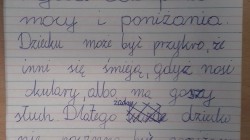 mocy i poniżania.
Dziecku może być przykro, że
inni się śmieją, gdyż nosi
okulary, albo ma gorszy
słuch. Dlatego żadne dziecko
nie